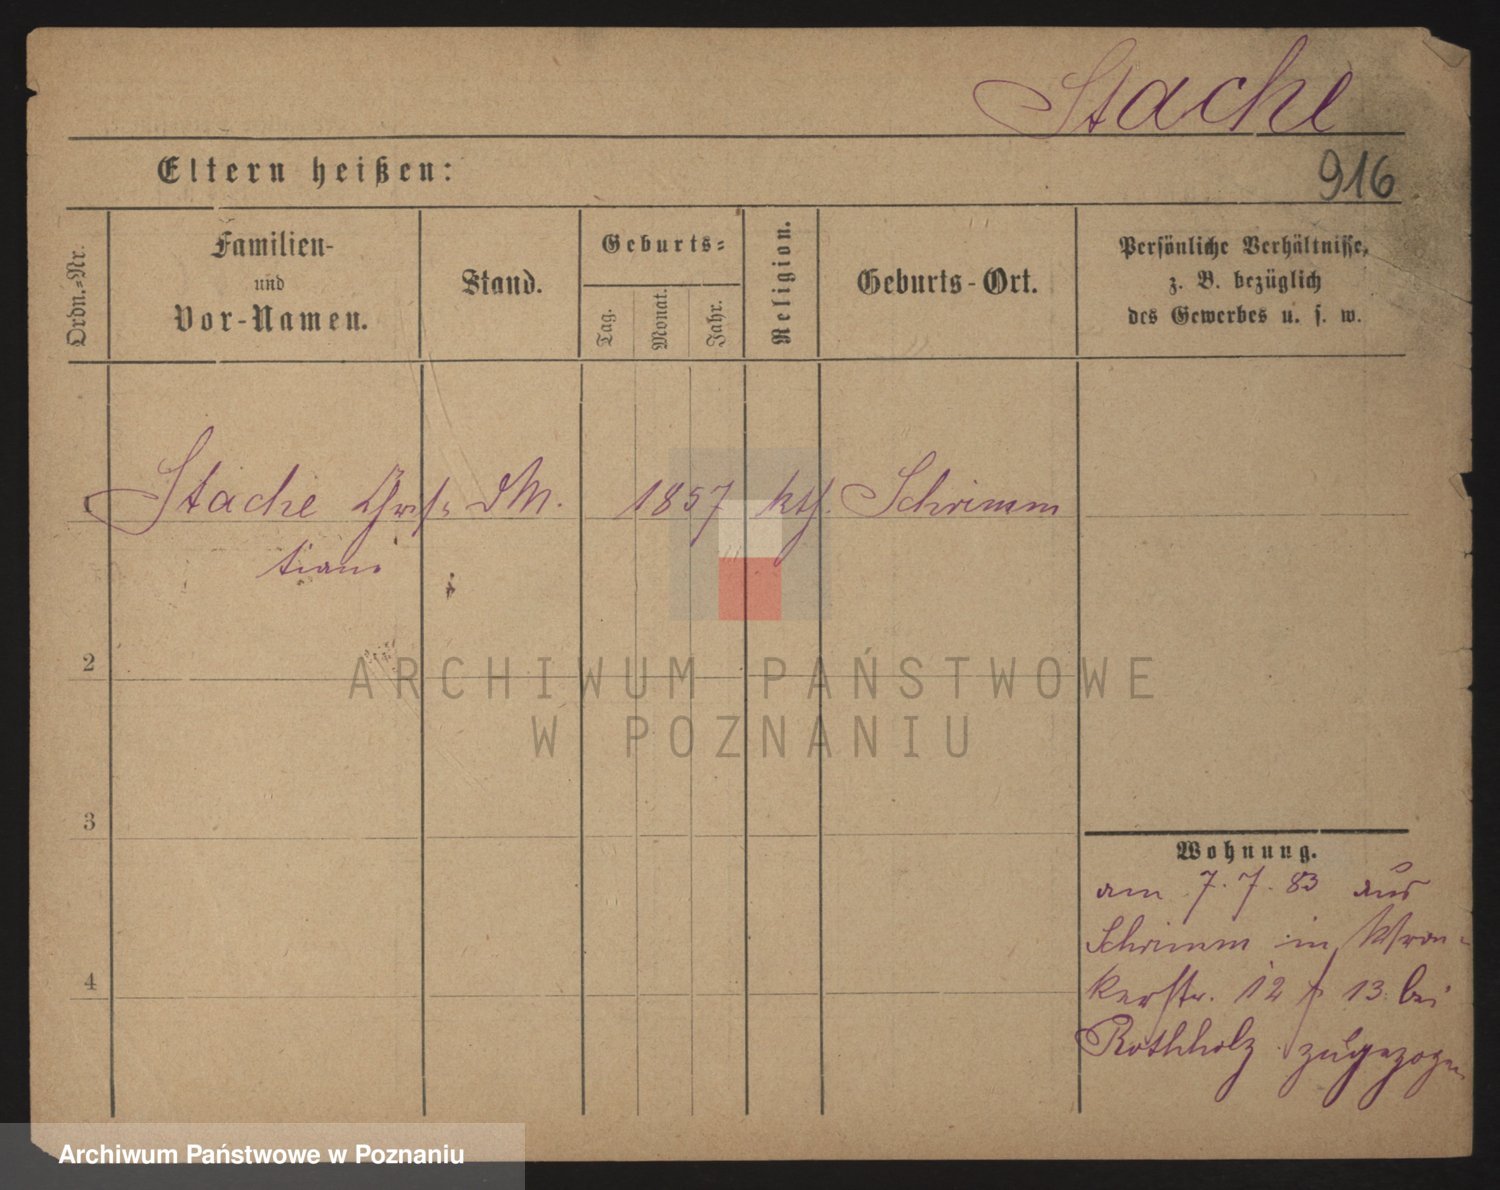 Stache
Eltern heißen:
916
Ordn.-Nr.
Familien-
und
Vor-Namen.
Stand.
Geburts-
Tag.
Monat.
Jahr.
Religion.
Geburts-Ort.
Persönliche Verhältnisse,
z. B. bezüglich
des Gewerbes u. s. w.
1 Stache Chris- dM. 1857 kth. Schrimm
tiane
2
ARCHIWUM PAŃSTWOWE
W POZNANIU
3
Wohnung.
am 7.7.83 aus
Schrimm in Wron-
4
kerstr. 12 / 13 bei
Rothholz zugezogen
Archiwum Państwowe w Poznaniu